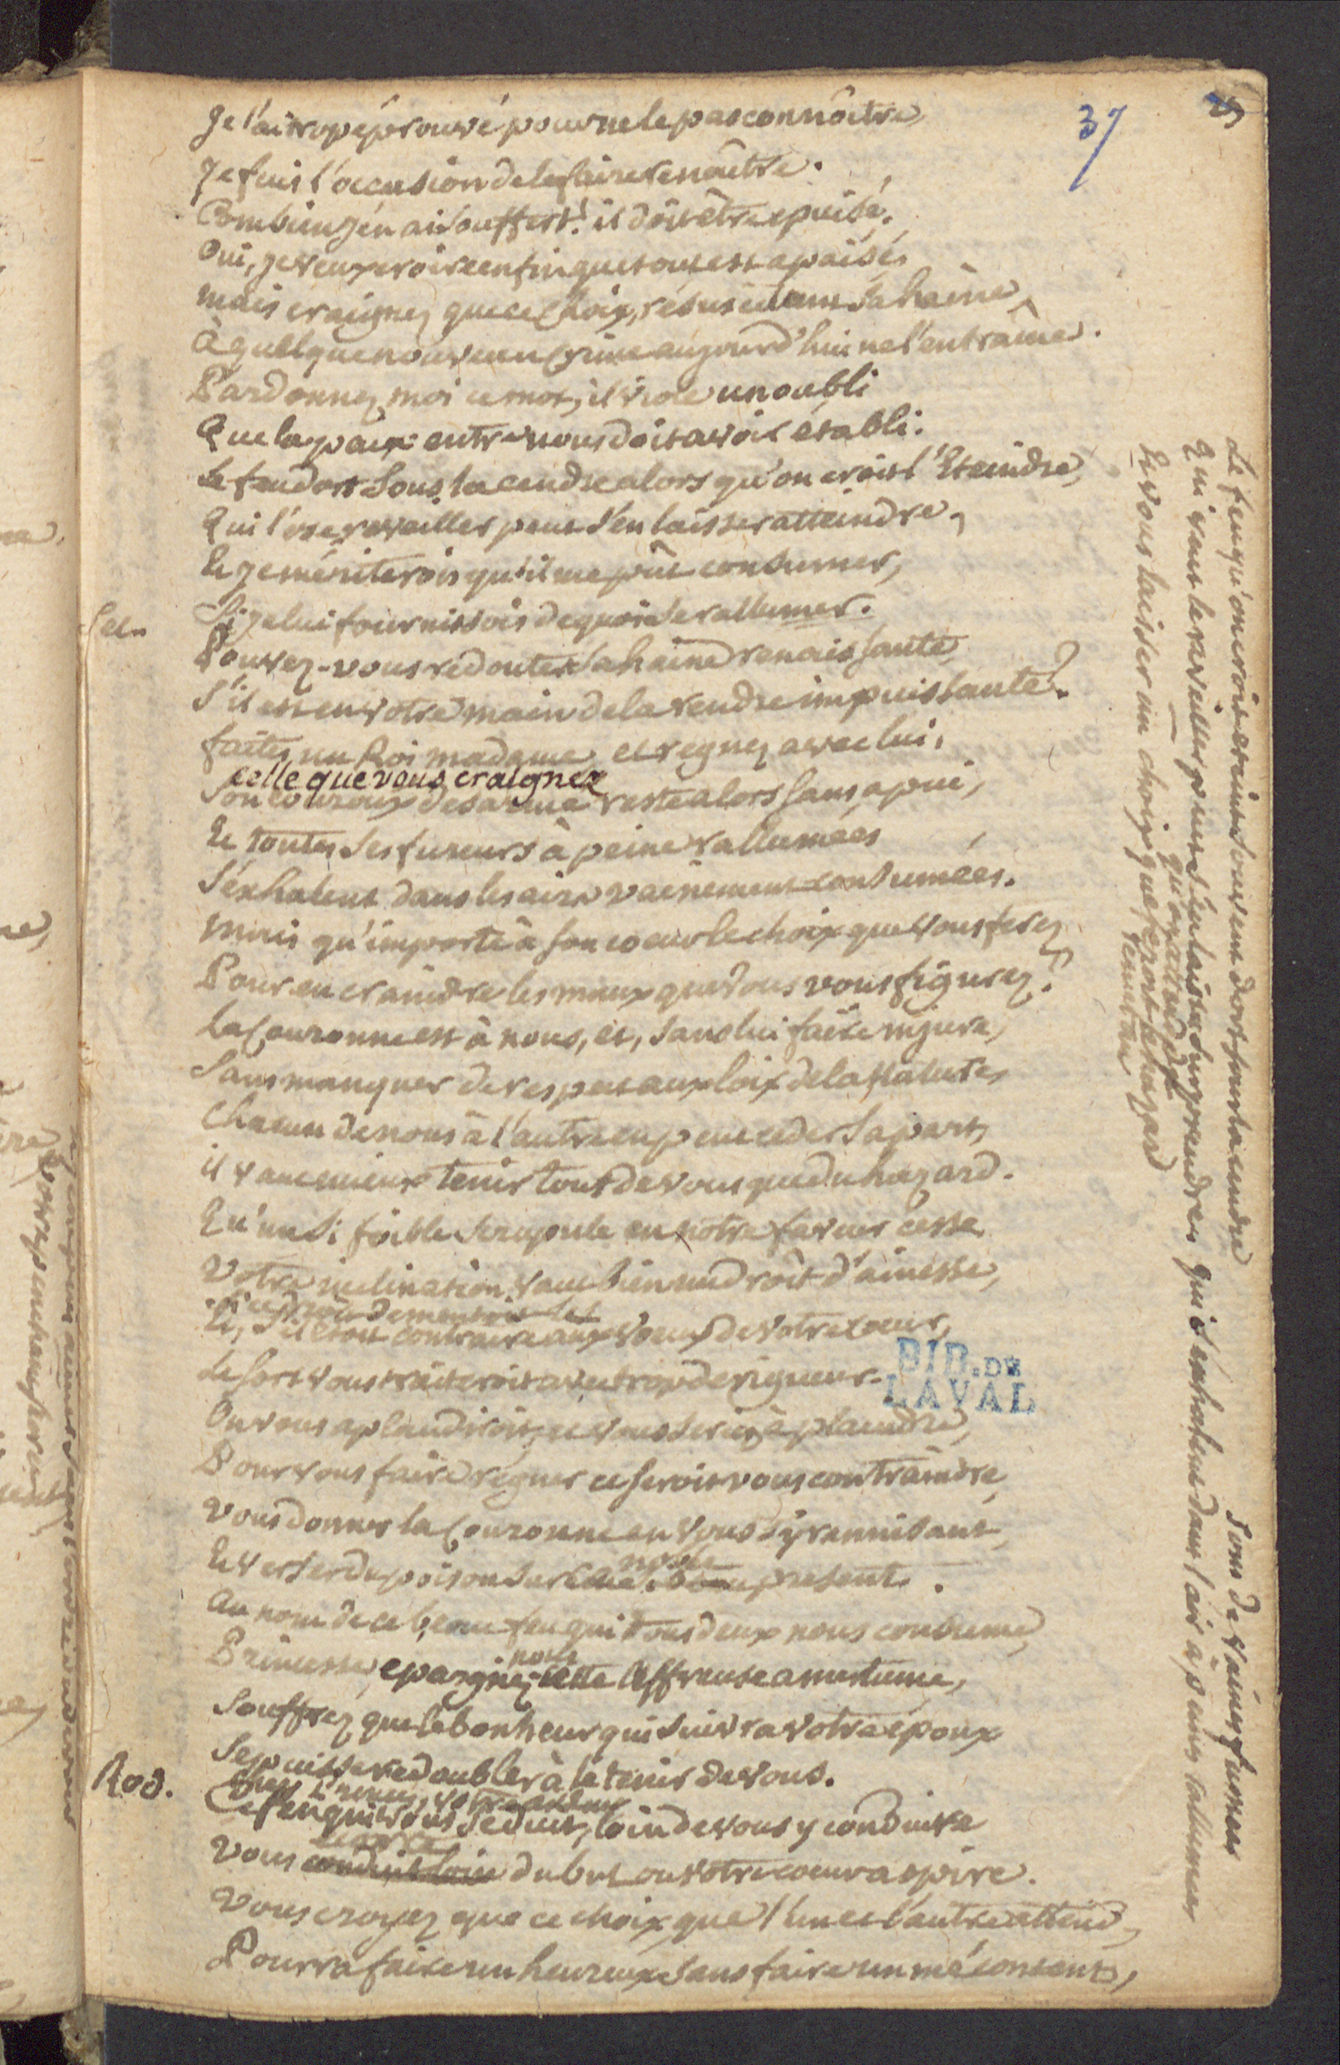 37
Je l'ai trop éprouvé pour ne le pas connôitre,
Je fuis l'occasion de le faire renaître.
Combien j'en ai souffert! il doit être epuisé,
Oui, je veux croire enfin que tout est apaisé,
mais craignez que ce choix, résuscitant sa haine,
à quelque nouveau crime aujourd'hui ne l'entraîne.
Pardonnez moi ce mot, il viole un oubli
Que la paix entre nous doit avoir établi.
Le feu dort sous la cendre alors qu'on croit l'Eteindre,
Qui l'ose reveiller peut s'en laisser atteindre,
Et je mériterois qu'il me pût consumer,
Si je lui fournissois de quoi se rallumer.
Sel.
Pouvez-vous redouter sa haine renaissante,
S'il est en votre main de la rendre impuissante?
faites un Roi madame, et regnez avec lui,
celle que vous craignez
Son couroux desarmé reste alors sans apui,
Et toutes ses fureurs à peine rallumées
S'exhalent dans les airs vainement consumées.
mais qu'importe à son coeur le choix que vous ferez
Pour en craindre les maux que vous vous figurez?
La Couronne est à nous, et, sans lui faire injure,
Sans manquer de respect aux loix de la Nature,
Chacun de nous à l'autre en peut ceder sa part,
il vaut mieux tenir tout de vous que du hazard.
Qu'un si foible scrupule en notre faveur cesse
Votre inclination vaut bien un droit d'ainesse,
Et, s'il étoit contraire aux voeux de votre coeur,
Le sort vous traiteroit avec trop de rigueur.
On vous aplaudiroit, et vous seriez à plaindre,
Pour vous faire regner ce seroit vous contraindre,
Vous donner la Couronne en vous tyrannisant,
Et verser du poison sur ce present.
noble
au nom de ce beau feu qui tous deux nous consume,
Princesse, epargnez cette affreuse amertume,
nous
Souffrez que le bonheur qui suivra votre epoux
Se puisse redoubler à le tenir de vous.
Rod.
Ce feu qui vous seduit, loin de vous y conduire
Vous du but où votre coeur aspire.
Vous croyez que ce choix que l'un et l'autre attend,
Pourra faire un heureux sans faire un mécontent,
BIB. DE
LAVAL
Le feu qu'on croit eteint souvent dort sous la cendre
Qui veut le reveiller peut s'en laisser surprendre
Et vous laisser un choix que feroit le hazard
qui s'exhalent dans l'air à peine rallumées
Sont de vaines fumées